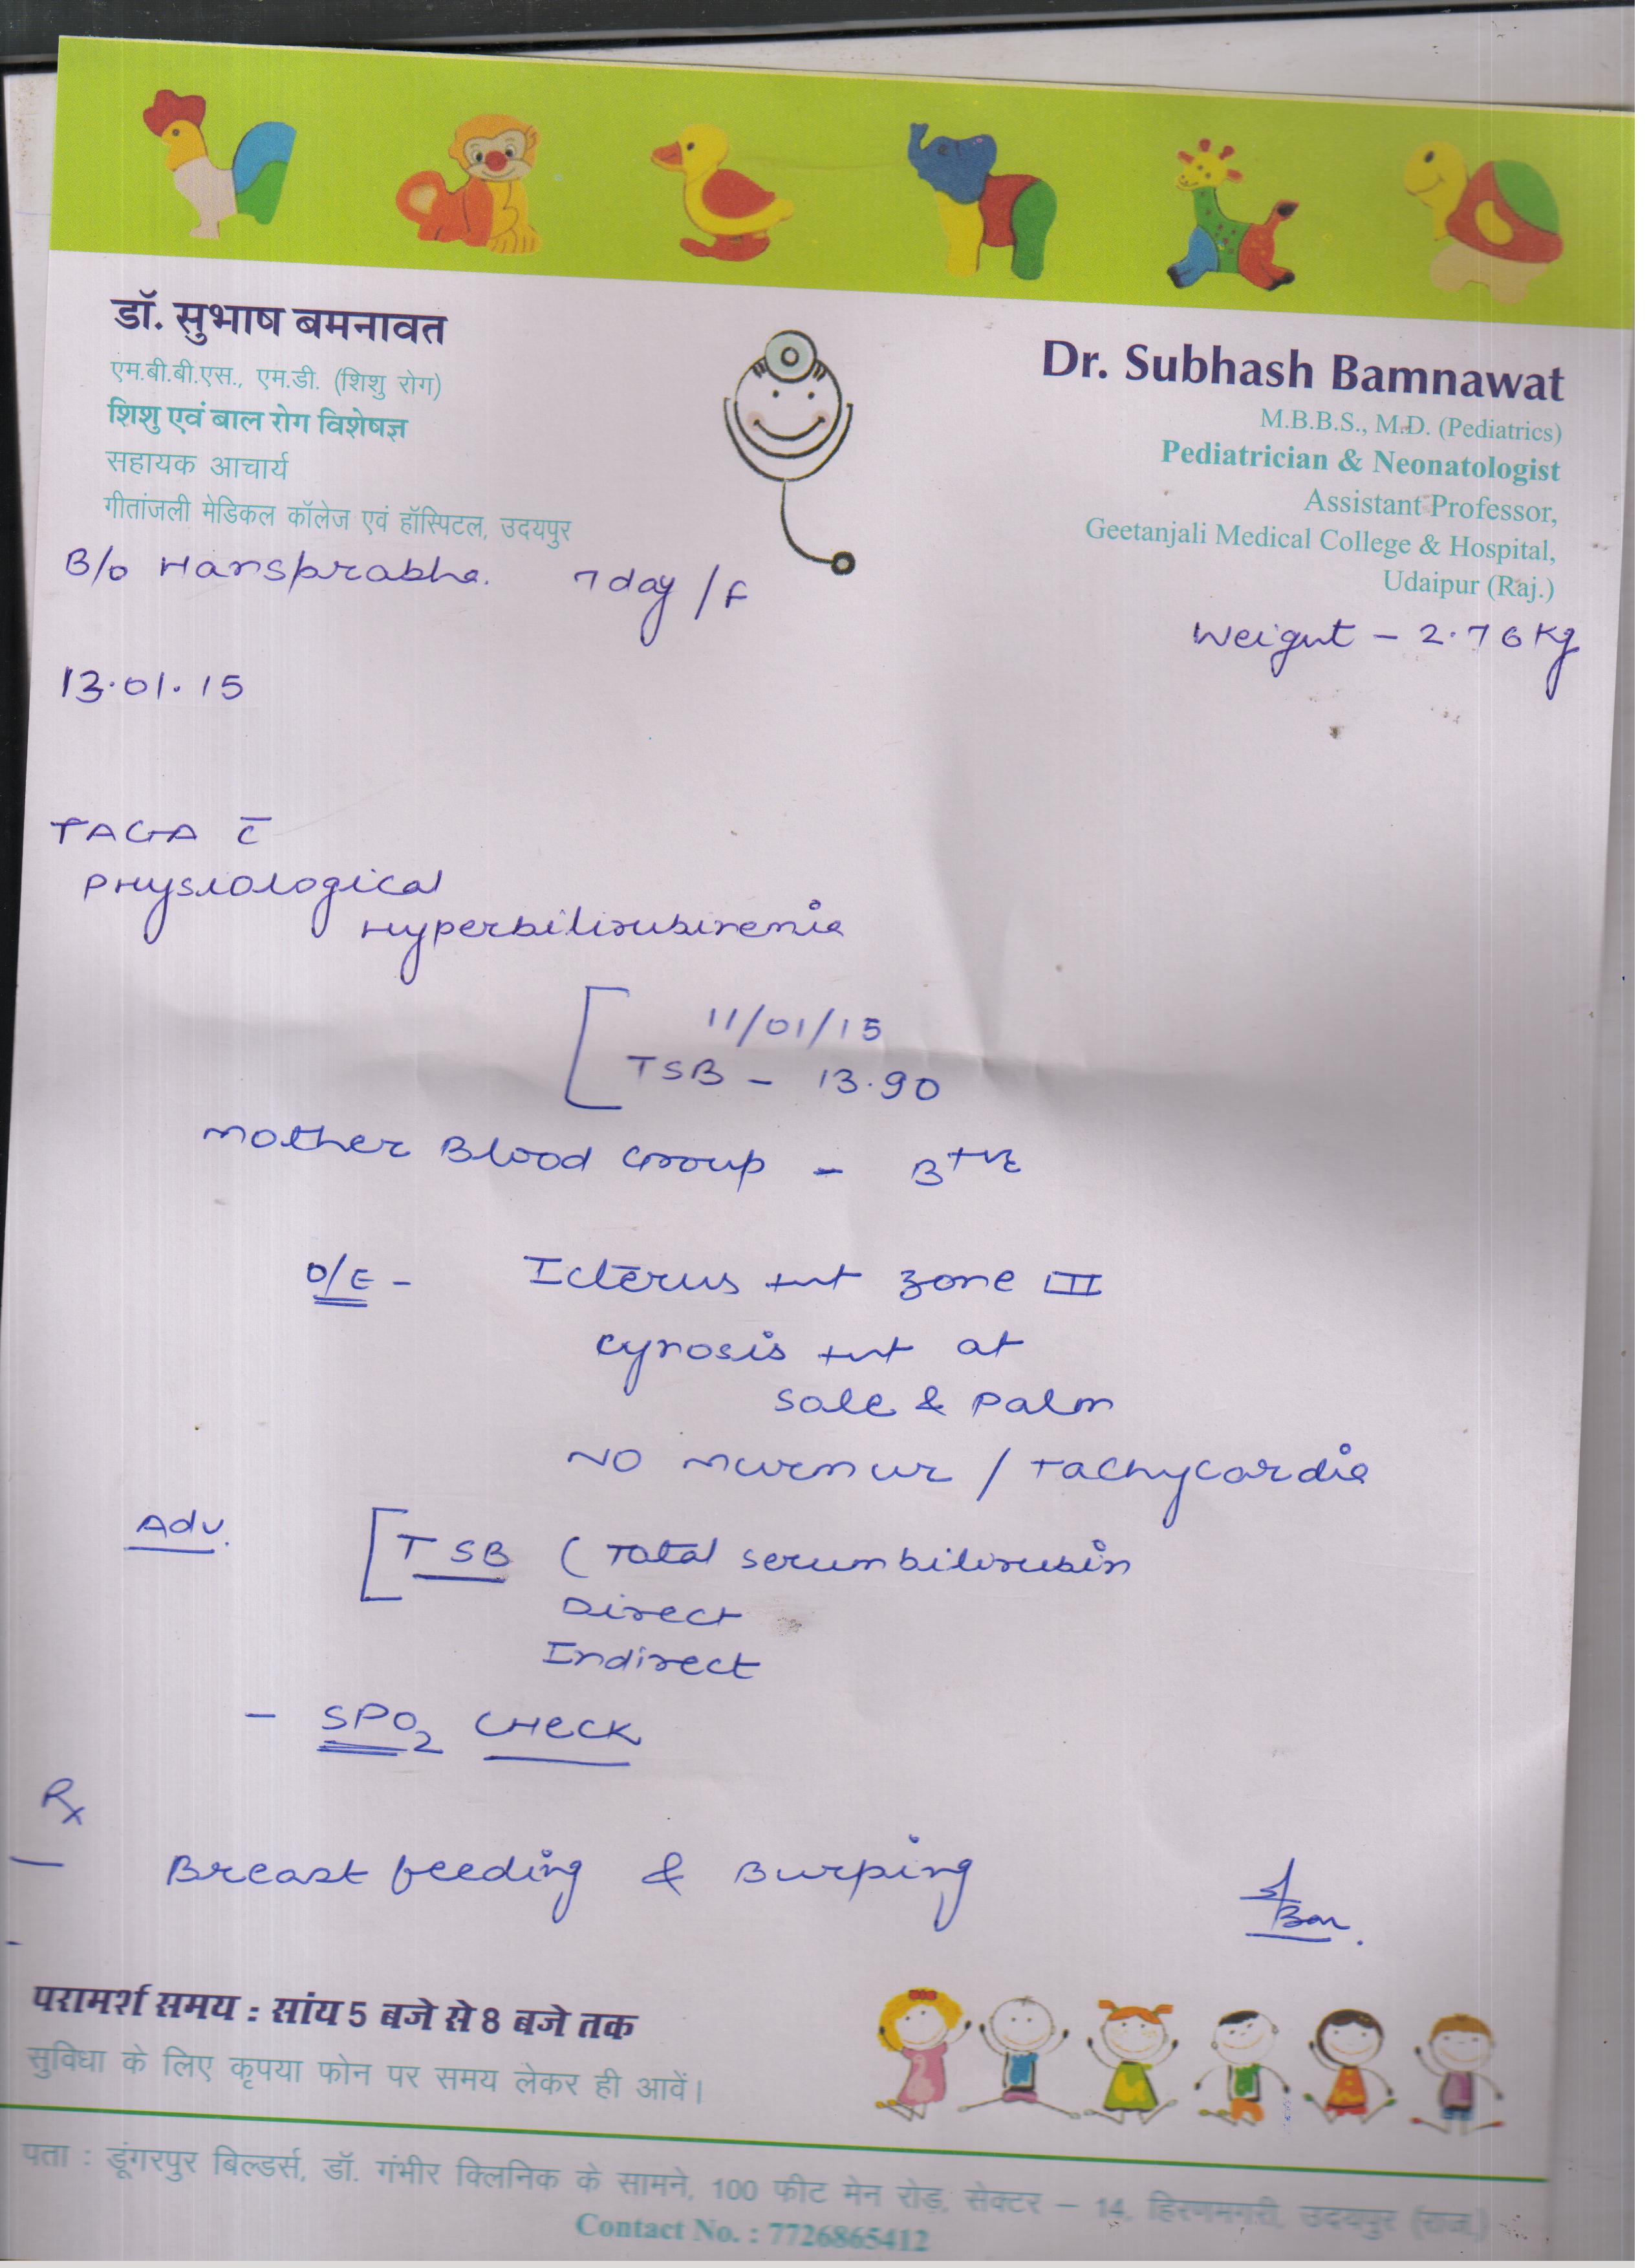 डॉ. सुभाष बमनावत
एम.बी.बी.एस., एम.डी. (शिशु रोग)
शिशु एवं बाल रोग विशेषज्ञ
सहायक आचार्य
गीतांजली मेडिकल कॉलेज एवं हॉस्पिटल, उदयपुर
Dr. Subhash Bamnawat
M.B.B.S., M.D. (Pediatrics)
Pediatrician & Neonatologist
Assistant Professor,
Geetanjali Medical College & Hospital,
Udaipur (Raj.)
B/o Hansprabha. 7 day / F
Weight - 2.76 Kg
13.01.15
TAGA c̄
Physiological
Hyperbilirubinemia
11/01/15
TSB - 13.90
Mother Blood Group - B+ve
O/E - Icterus +nt zone III
cynosis +nt at
sole & palm
No murmur / Tachycardia
Adv. [TSB (Total serum bilirubin
Direct
Indirect
- SPO2 CHECK
Rx
- Breast feeding & Burping
परामर्श समय : सांय 5 बजे से 8 बजे तक
सुविधा के लिए कृपया फोन पर समय लेकर ही आवें।
पता : डूंगरपुर बिल्डर्स, डॉ. गंभीर क्लिनिक के सामने, 100 फीट मेन रोड़, सेक्टर – 14, हिरणमगरी, उदयपुर (राज.)
Contact No. : 7726865412